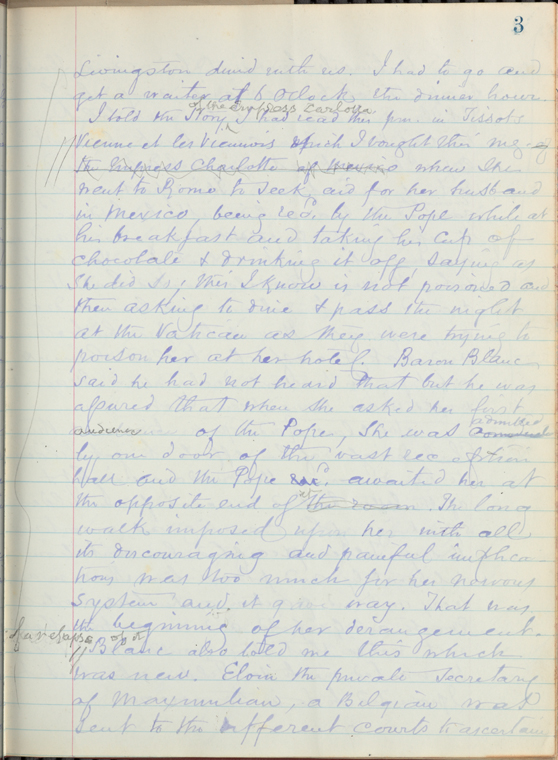 3
Livingston dined with us. I had to go and
get a waiter at 6 O'Clock, the dinner hour.
of the Empress Carlotta
I told the Story, I had read this p.m. in Tissot's
Vienne et les Viennois which I bought this mg of
the Empress Charlotte of Mexico when she
went to Rome to seek aid for her husband
in Mexico, being recd. by the Pope while at
his breakfast and taking his cup of
chocolate & drinking it off, saying as
she did so; this I know is not poisoned and
then asking to dine & pass the night
at the Vatican as they were trying to
poison her at her hotel. Baron Blanc
said he had not heard that but he was
assured that when she asked her first
audience of the Pope, she was admitted
by one door of the vast reception
hall and the Pope awaited her at
the opposite end of it the room. The long
walk imposed upon her with all
its discouraging and painful implica
tions was too much for her nervous
system and it gave way. That was
the beginning of her derangement.
of a relapse of it
// Blanc also told me this which
was new. Eloin the private Secretary
of Maximilian, a Belgian was
sent to the different Courts to ascertain